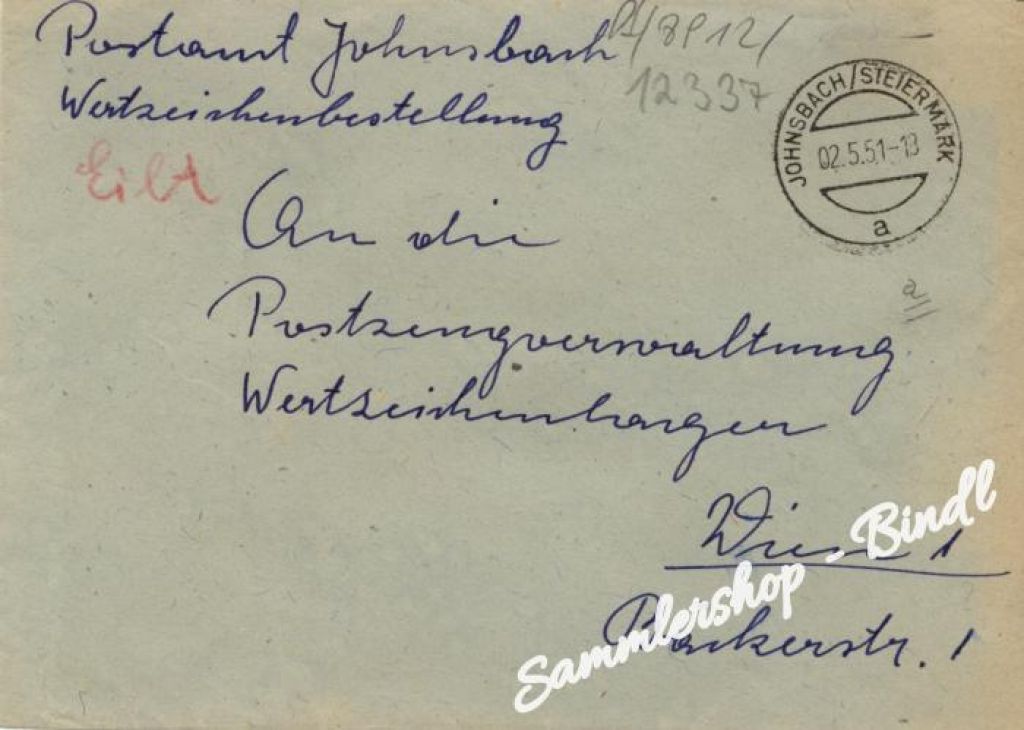 Postamt Johnsbach
Wertzeichenbestellung
Eilt
12337
JOHNSBACH/STEIERMARK
02.5.51-18
a
An die
Postzeugverwaltung
Wertzeichenlager
Wien 1
Bäckerstr. 1
Sammlershop - Bindl